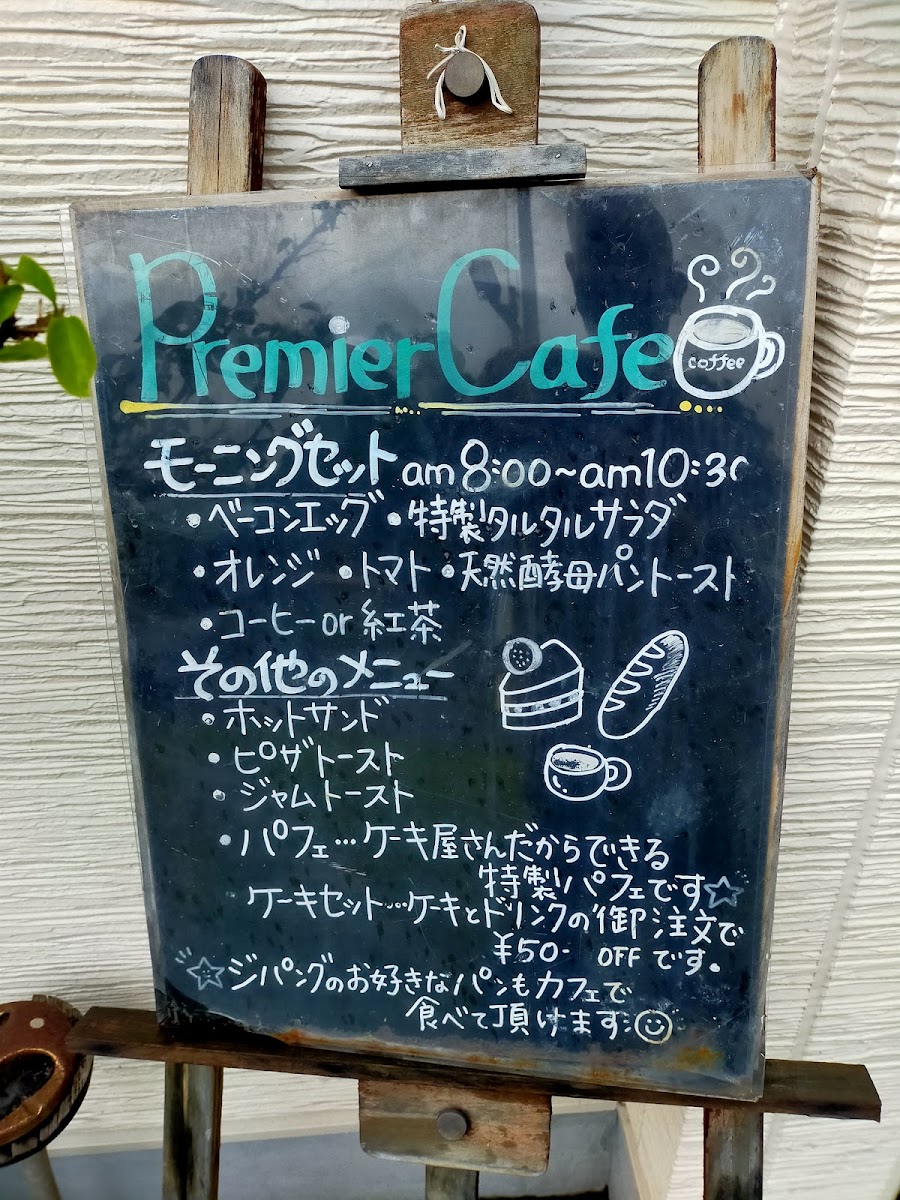 Premier Cafe
coffee
モーニングセット am8:00~am10:30
・ベーコンエッグ ・特製タルタルサラダ
・オレンジ ・トマト ・天然酵母パントースト
・コーヒーor紅茶
その他のメニュー
・ホットサンド
・ピザトースト
・ジャムトースト
・パフェ…ケーキ屋さんだからできる
特製パフェです☆
ケーキセット…ケーキとドリンクの御注文で
¥50- OFFです。
☆ジパングのお好きなパンもカフェで
食べて頂けます☺